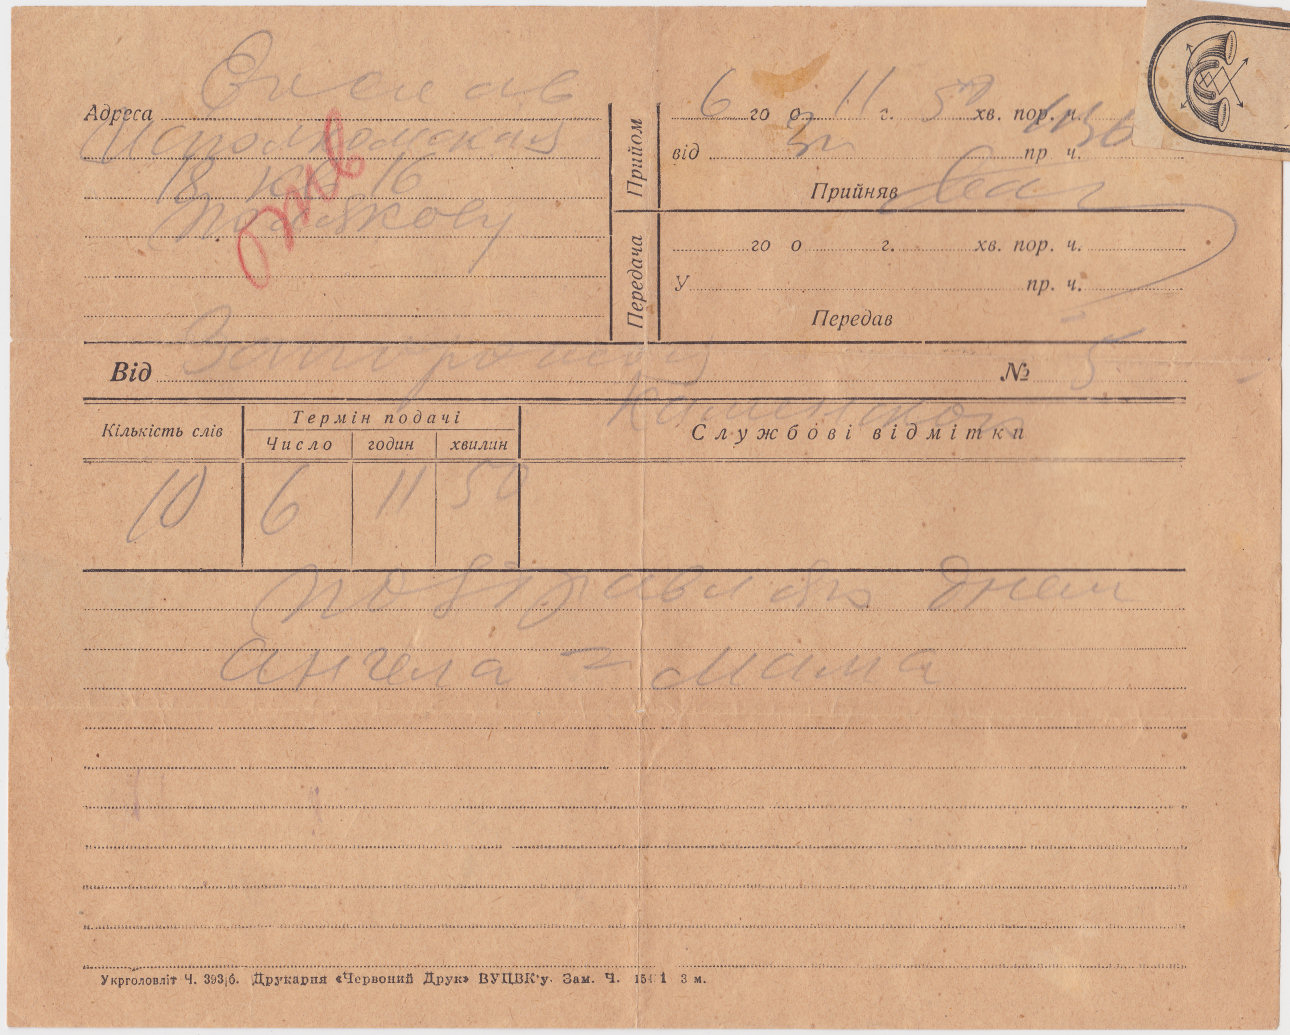 Екслав
Адреса
Исполкомская
18 кв 16
Полякову
отв
Прийом
6 го о 11 г. 50 хв. пор. ч. 1136
від Зп пр ч.
Прийняв
Передача
го о г. хв. пор. ч.
У пр. ч.
Передав
Від Запорожья № 5
Каменской
Кількість слів
Термін подачі
Число годин хвилин
Службові відмітки
10 6 11 50
поздравляю днем
ангела = мама
Укрголовліт Ч. 393|б. Друкарня «Червоний Друк» ВУЦВК'у. Зам. Ч. 3 м.